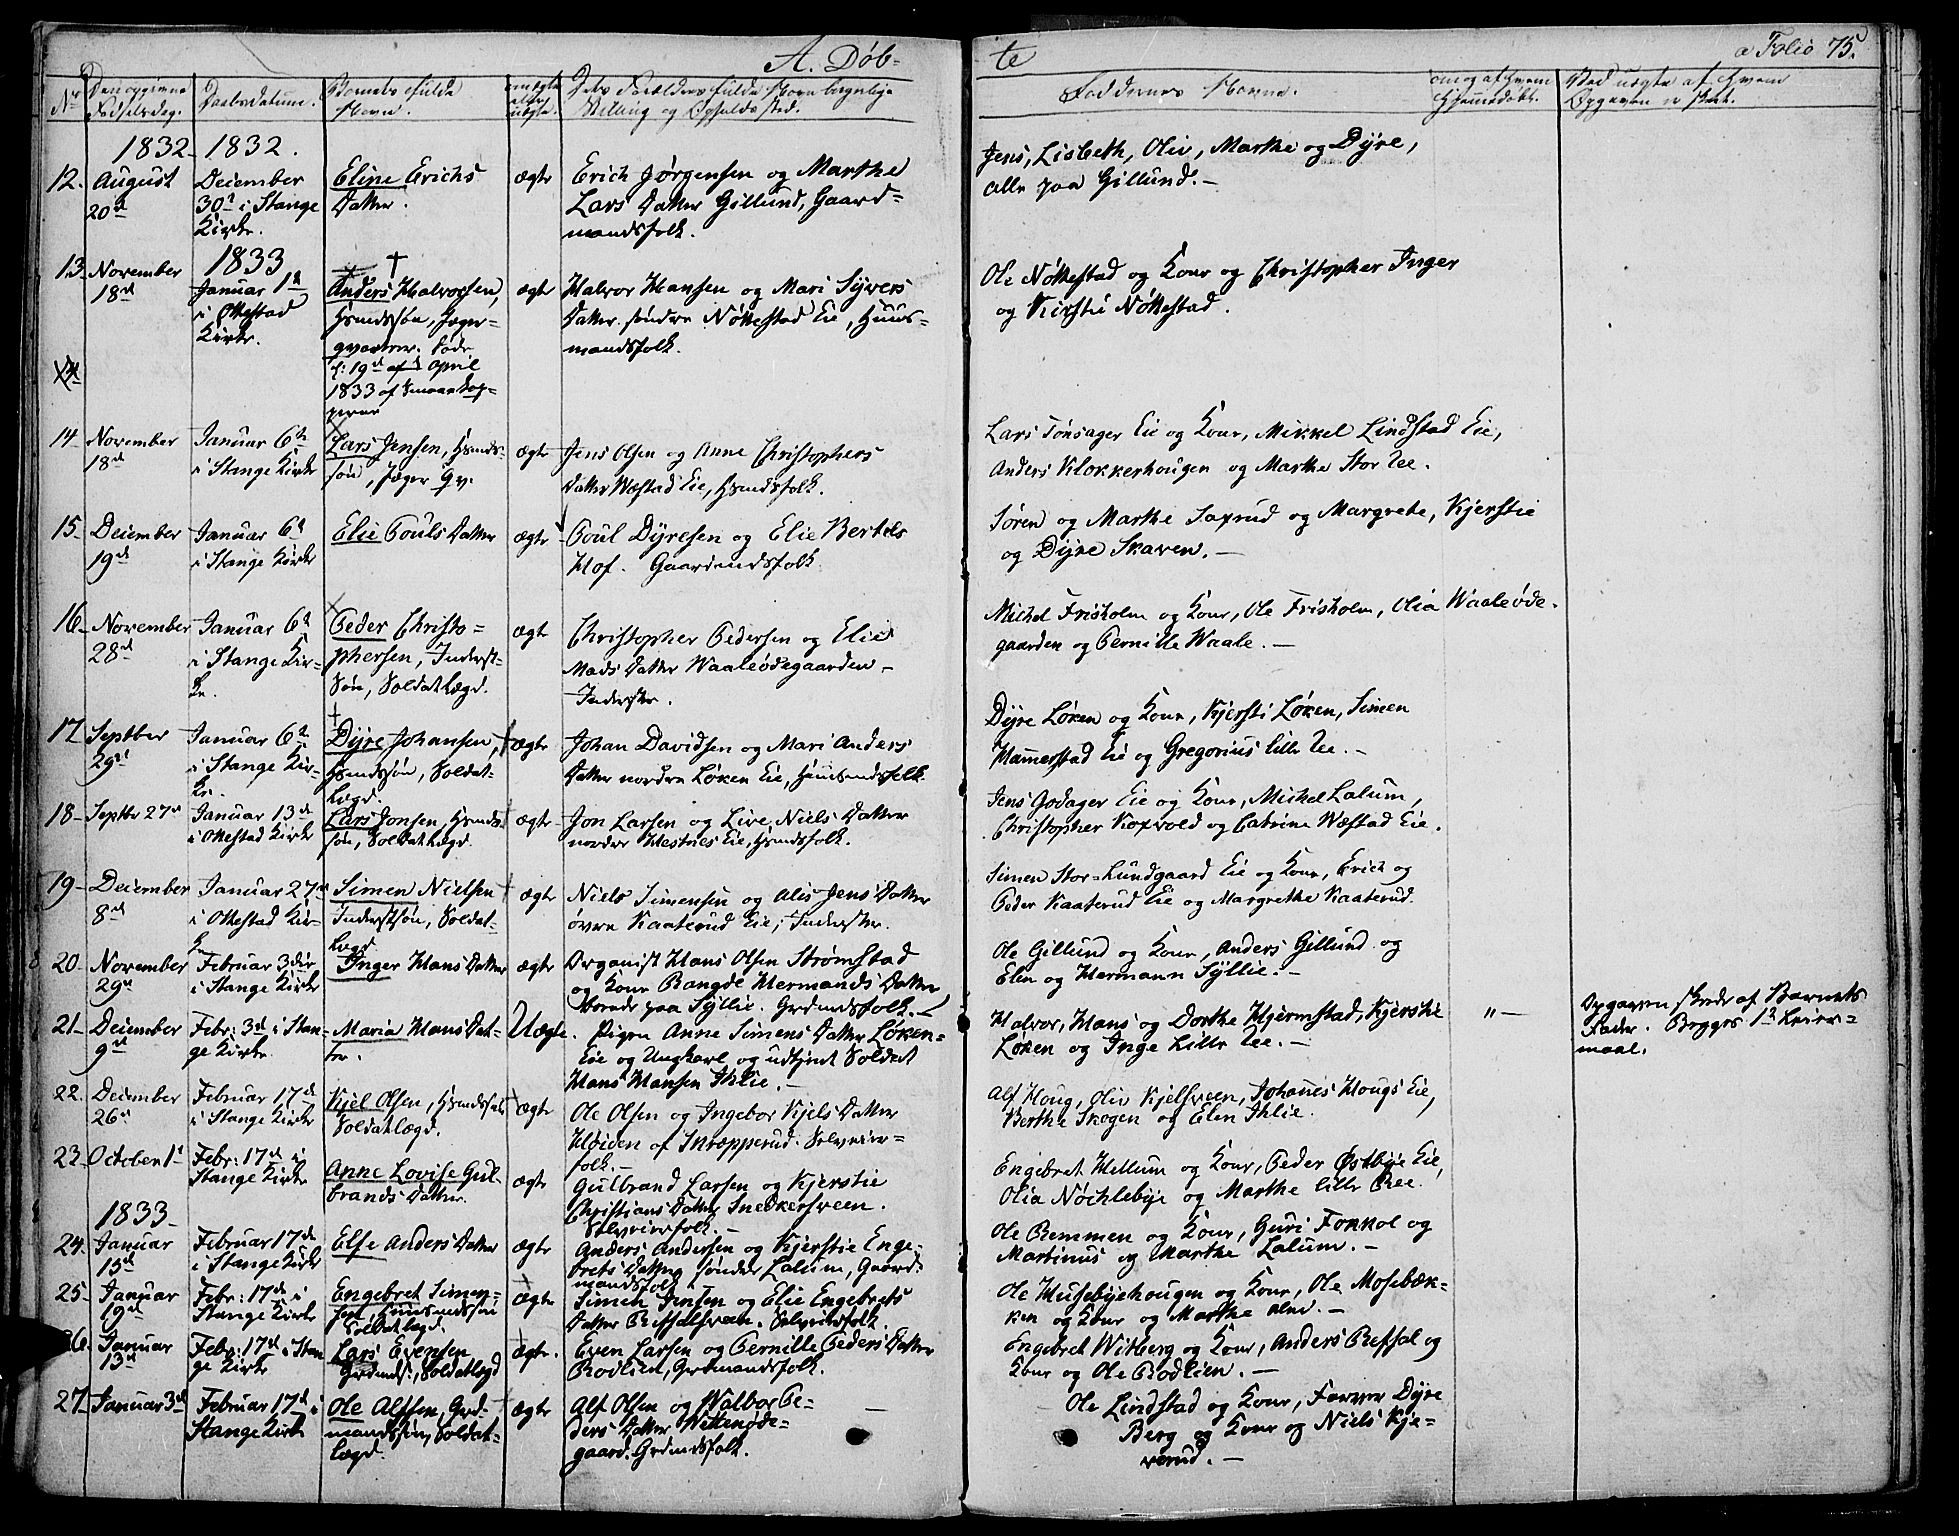 A. Døb-
te
a Folio 75.
No
Den opgivne Fødselsdag.
Daabsdatum.
Barnets fulde Navn.
om ægte eller uægte.
Dets Forældres fulde Navn borgerlige Stilling og Opholdssted.
Faddernes Navne.
om og af hvem hjemmedøbt.
Ved uægte af hvem Opgaven er skeet.
1832
1832.
12.
August
20d
December
30d i Stange
Kirke.
Eline Erichs
Datter.
ægte
Erich Jørgensen og Marthe
Lars Datter Gillund, Gaard-
mandsfolk.
Jens, Lisbeth, Oliv, Marthe og Dyre,
alle paa Gillund. -
13
November
18d
1833
Januar 1ste
i Ottestad
Kirke.
Anders Halvorsen,
Hsmdssøn, Jæger-
qvarteer. Døde
d: 19d April
1833 af Smaakop-
perne
ægte
Halvor Hansen og Mari Syvers
Datter søndre Nøttestad Eie, Huus-
mandsfolk.
Ole Nøttestad og Kone og Christopher Inger
og Kirstie Nøttestad.
14
November
18d
Januar 6te
i Stange Kirke
Lars Jensen, Hsmds-
søn, Jæger Qv.
ægte
Jens Olsen og Anne Christophers
Datter Wæstad Eie, Hsmdsfolk.
Lars Tønsager Eie og Kone, Mikkel Lindstad Eie,
Anders Klokkerhougen og Marthe Stor Ree.
15
December
19d
Januar 6te
i Stange Kirke
Elie Pouls Datter
ægte
Poul Dyresen og Elie Bertels
Hof. Gaardmdsfolk
Søren og Marthe Saxrud og Margrete, Kjerstie
og Dyre Skaven. -
16
November
28d
Januar 6te
i Stange Kir-
ke.
Peder Christo-
phersen, Inderst-
Søn, Soldatlægd.
ægte
Christopher Pedersen og Elie
Mads Datter Waaleødegaarden -
Inderster.
Michel Frisholm og Kone, Ole Frisholm, Olia Waaleøde-
gaarden og Pernille Waale. -
17
Septber
29d
Januar 6te
i Stange Kir-
ke.
Dyre Johansen,
Hsmdssøn, Soldat-
lægd.
ægte
Johan Davidsen og Mari Anders
Datter nordre Løken Eie, Huusmdsfolk.
Dyre Løken og Kone, Kjersti Løken, Simen
Hamerstad Eie og Gregorius lille Ree. -
18
Septbr 27d
Januar 13de
i Ottestad Kirke
Lars Jonsen, Hsmds-
søn, Soldatlægd.
ægte
Jon Larsen og Live Niels Datter
nordre Hestnes Eie, Hsmdsfolk.
Jens Godager Eie og Kone, Michel Lalum,
Christopher Koxvold og Catrine Wæstad Eie.
19
December
8d
Januar 27d
i Ottestad Kir-
ke
Simen Nielsen
Inderstsøn, Soldat-
lægd
ægte
Niels Simensen og Alis Jens Datter
øvre Kaaterud Eie, Inderster.
Simen Stor-Lundgaard Eie og Kone, Erich og
Peder Kaaterud Eie og Margrethe Kaaterud.
20
November
29d
Februar 3die
i Stange Kirke
Inger Hans Datter
ægte
Organist Hans Olsen Strømstad
og Kone Rangde Hermands Datter
boende paa Syllie. Grdmdsfolk. -
Ole Gillund og Kone, Anders Gillund og
Elen og Hermann Syllie. -
21
December
9d
Febr: 3d i Stan-
ge Kirke.
Maria Hans Dat-
ter.
Uægte.
Pigen Anne Simens Datter Løken-
Eie og Ungkarl og udtjent Soldat
Hans Hansen Ihlie. -
Halvor, Hans og Dorthe Hjermstad, Kjerstie
Løken og Inge Lille Ree. -
" -
Opgaven skeede af Barnets
Fader. Begges 1ste Leier-
maal.
22.
December
26d
Februar 17de
i Stange Kirke
Kiel Olsen, Hsmdssøn
Soldatlægd.
ægte
Ole Olsen og Ingebor Kjels Datter
Høiden af Skræpperud. Selveier-
folk. -
Alf Houg, Oliv Kjelsveen, Johanes Hougs Eie,
Berthe Skogen og Elen Ihlie.
23
October 1d
Febr: 17de i
Stange Kirke
Anne Lovise Gul-
brands Datter.
ægte
Gulbrand Larsen og Kjerstie
Christians Datter Snedkersveen.
Selveierfolk. -
Engebret Hellum og Kone, Peder Østbye Eie,
Olia Nøchlebye og Marthe lille Ree.
1833
24
Januar
15d
Februar 17de
i Stange Kirke
Else Anders Datter
ægte
Anders Andersen og Kjerstie Enge-
brets Datter søndre Lalum, Gaard-
mandsfolk
Ole Remmen og Kone, Guri Fokkol og
Martinus og Marthe Lalum. -
25
Januar
19d
Febr: 17de i
Stange Kirke
Engebret Simen-
sen Huusmdssøn
Soldatlægd.
ægte
Simen Jensen og Elie Engebrets
Datter Refsalsveen. Selveierfolk.
Ole Husebyehougen og Kone, Ole Mosebæk-
ken og Kone og Marthe -
26.
Januar
13d
Febr: 17d i Stan-
ge Kirke
Lars Evensen
Grdmds:, Soldatlægd
ægte.
Even Larsen og Pernille Peders Datter
Rodlien, Grdmandsfolk.
Engebret Witberg og Kone, Anders Refsal og
Kone og Ole Rodlien. -
27
Januar 3d
Februar 17d i
Stange Kirke
Ole Alfsen, Grd-
mandssøn, Soldat-
lægd.
ægte
Alf Olsen og Walbor Pe-
ders Datter Wittenøde-
gaard. Grdmdsfolk.
Ole Lindstad og Kone, Farver Dyre
Berg og Kone og Niels Kje-
verud. -